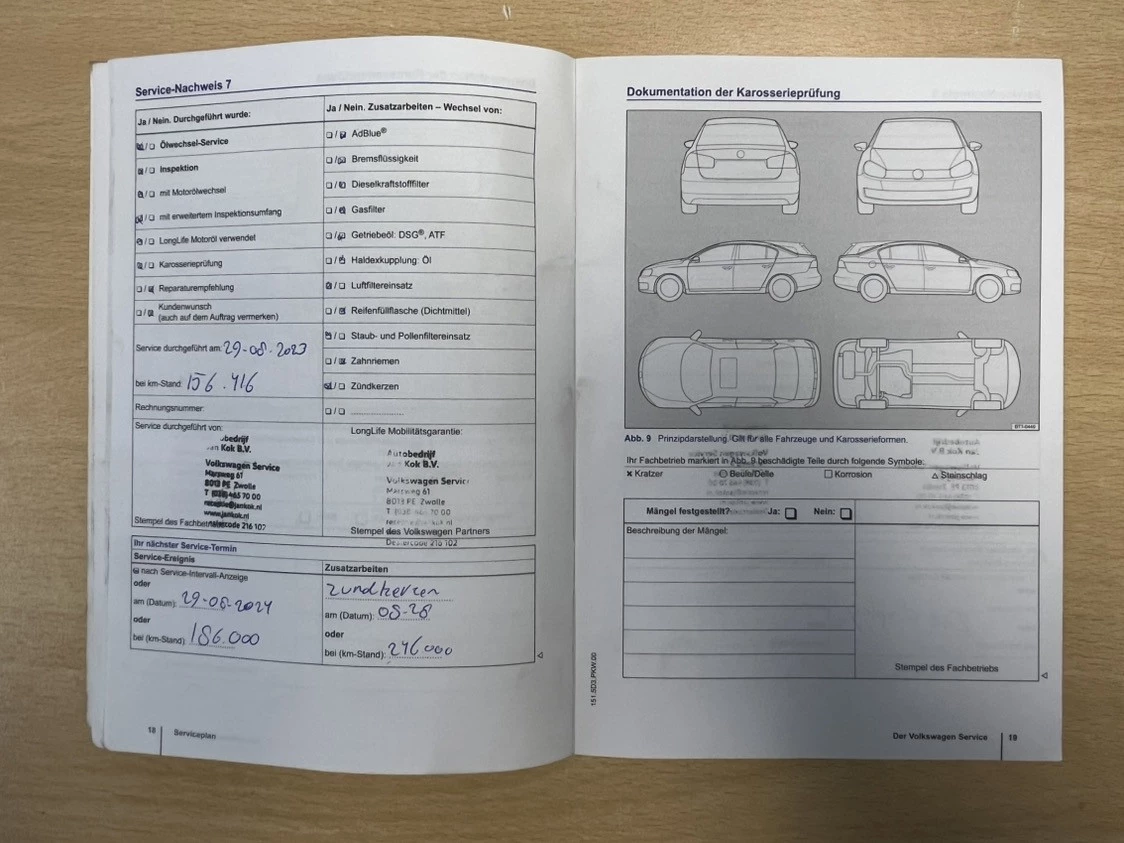 Service-Nachweis 7
Ja / Nein. Durchgeführt wurde:
Ölwechsel-Service
Inspektion
mit Motorölwechsel
mit erweitertem Inspektionsumfang
LongLife Motoröl verwendet
Karosserieprüfung
Reparaturempfehlung
Kundenwunsch
(auch auf dem Auftrag vermerken)
Service durchgeführt am: 29-08-2023
bei km-Stand: 156.416
Rechnungsnummer:
Service durchgeführt von:
Kok B.V.
Volkswagen Service
Marsweg 61
8013 PE Zwolle
www.jankok.nl
Stempel des
216 102
Ja / Nein. Zusatzarbeiten – Wechsel von:
AdBlue®
Bremsflüssigkeit
Dieselkraftstofffilter
Gasfilter
Getriebeöl: DSG®, ATF
Haldexkupplung: Öl
Luftfiltereinsatz
Reifenfüllflasche (Dichtmittel)
Staub- und Pollenfiltereinsatz
Zahnriemen
Zündkerzen
LongLife Mobilitätsgarantie:
Autobedrijf
Kok B.V.
Volkswagen Service
Marsweg 61
8013 PE Zwolle
Stempel des Volkswagen Partners
Dealercode 216 102
Ihr nächster Service-Termin
Service-Ereignis
nach Service-Intervall-Anzeige
oder
am (Datum): 29-08-2024
oder
bei (km-Stand): 186.000
Zusatzarbeiten
zundkerzen
am (Datum): 08-28
oder
bei (km-Stand): 246000
18 Serviceplan
Dokumentation der Karosserieprüfung
BT1-0440
Abb. 9 Prinzipdarstellung: Gilt für alle Fahrzeuge und Karosserieformen.
Ihr Fachbetrieb markiert in Abb. 9 beschädigte Teile durch folgende Symbole:
x Kratzer O Beule/Delle □ Korrosion △ Steinschlag
Mängel festgestellt? Ja: Nein:
Beschreibung der Mängel:
Stempel des Fachbetriebs
151.5D3.PKW.00
Der Volkswagen Service 19